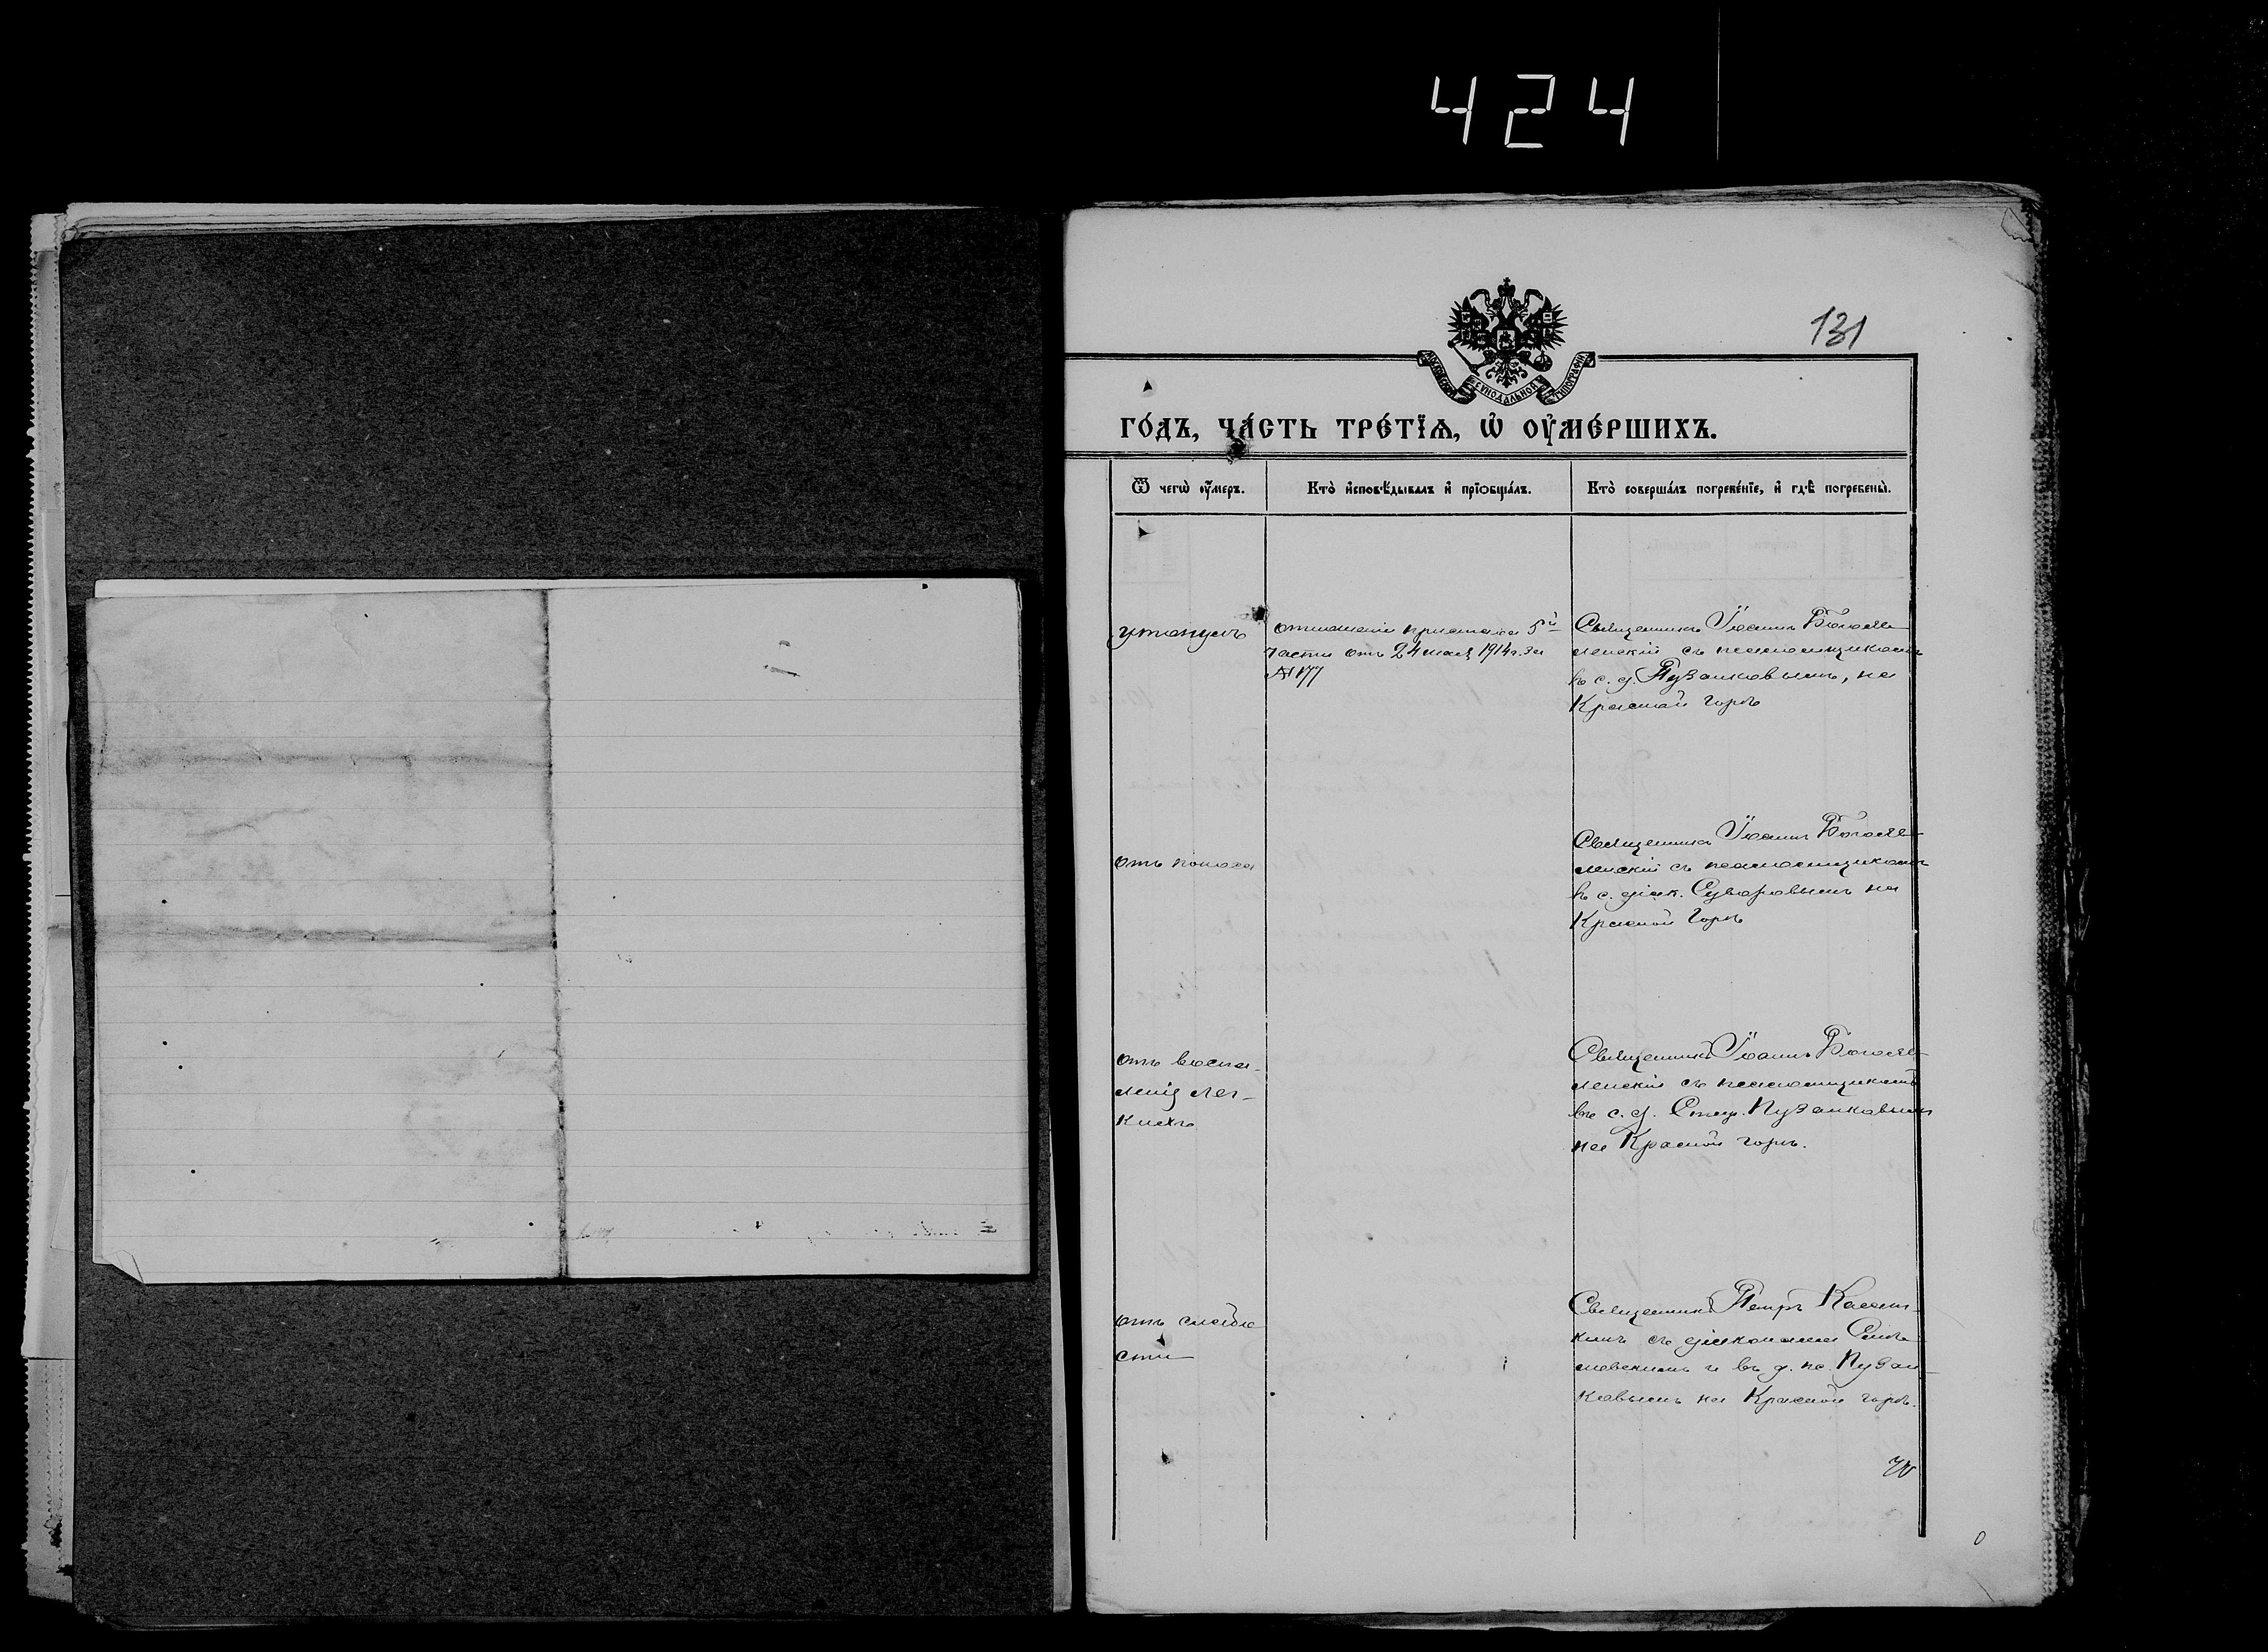 424
131
МОСКОВСКОЙ СѴНОДАЛЬНОЙ ТИПОГРАФІИ
ГО́ДЪ, ЧА́СТЬ ТРЕ́ТЇѦ, Ѡ҆ ОУ҆МЕ́РШИХЪ.
Ѿ чегѡ̀ оу҆́меръ.
Кто̀ и҆сповѣ́дывалъ и҆ прїѡбща́лъ.
Кто̀ соверша́лъ погребе́нїе, и҆ гдѣ̀ погребены̀.
утонулъ
отношеніе пристава 5й
части отъ 24 мая 1914 г. за
№ 177
Священникъ Іоаннъ Богояв-
ленскій съ псаломщикомъ
въ с. д. Пузанковымъ, на
Красной горѣ
отъ поноса
Священникъ Іоаннъ Богояв-
ленскій съ псаломщикомъ
въ с. діак. Суворовымъ на
Красной горѣ
отъ воспа-
ленія лег-
кихъ
Священникъ Іоаннъ Богояв-
ленскій съ псаломщикомъ
въ с. д. Пузанковымъ
на Красной горѣ.
отъ слабо
сти
Священникъ Петръ
съ діакономъ
и въ д. пс. Пузан-
ковымъ на Красной горѣ.